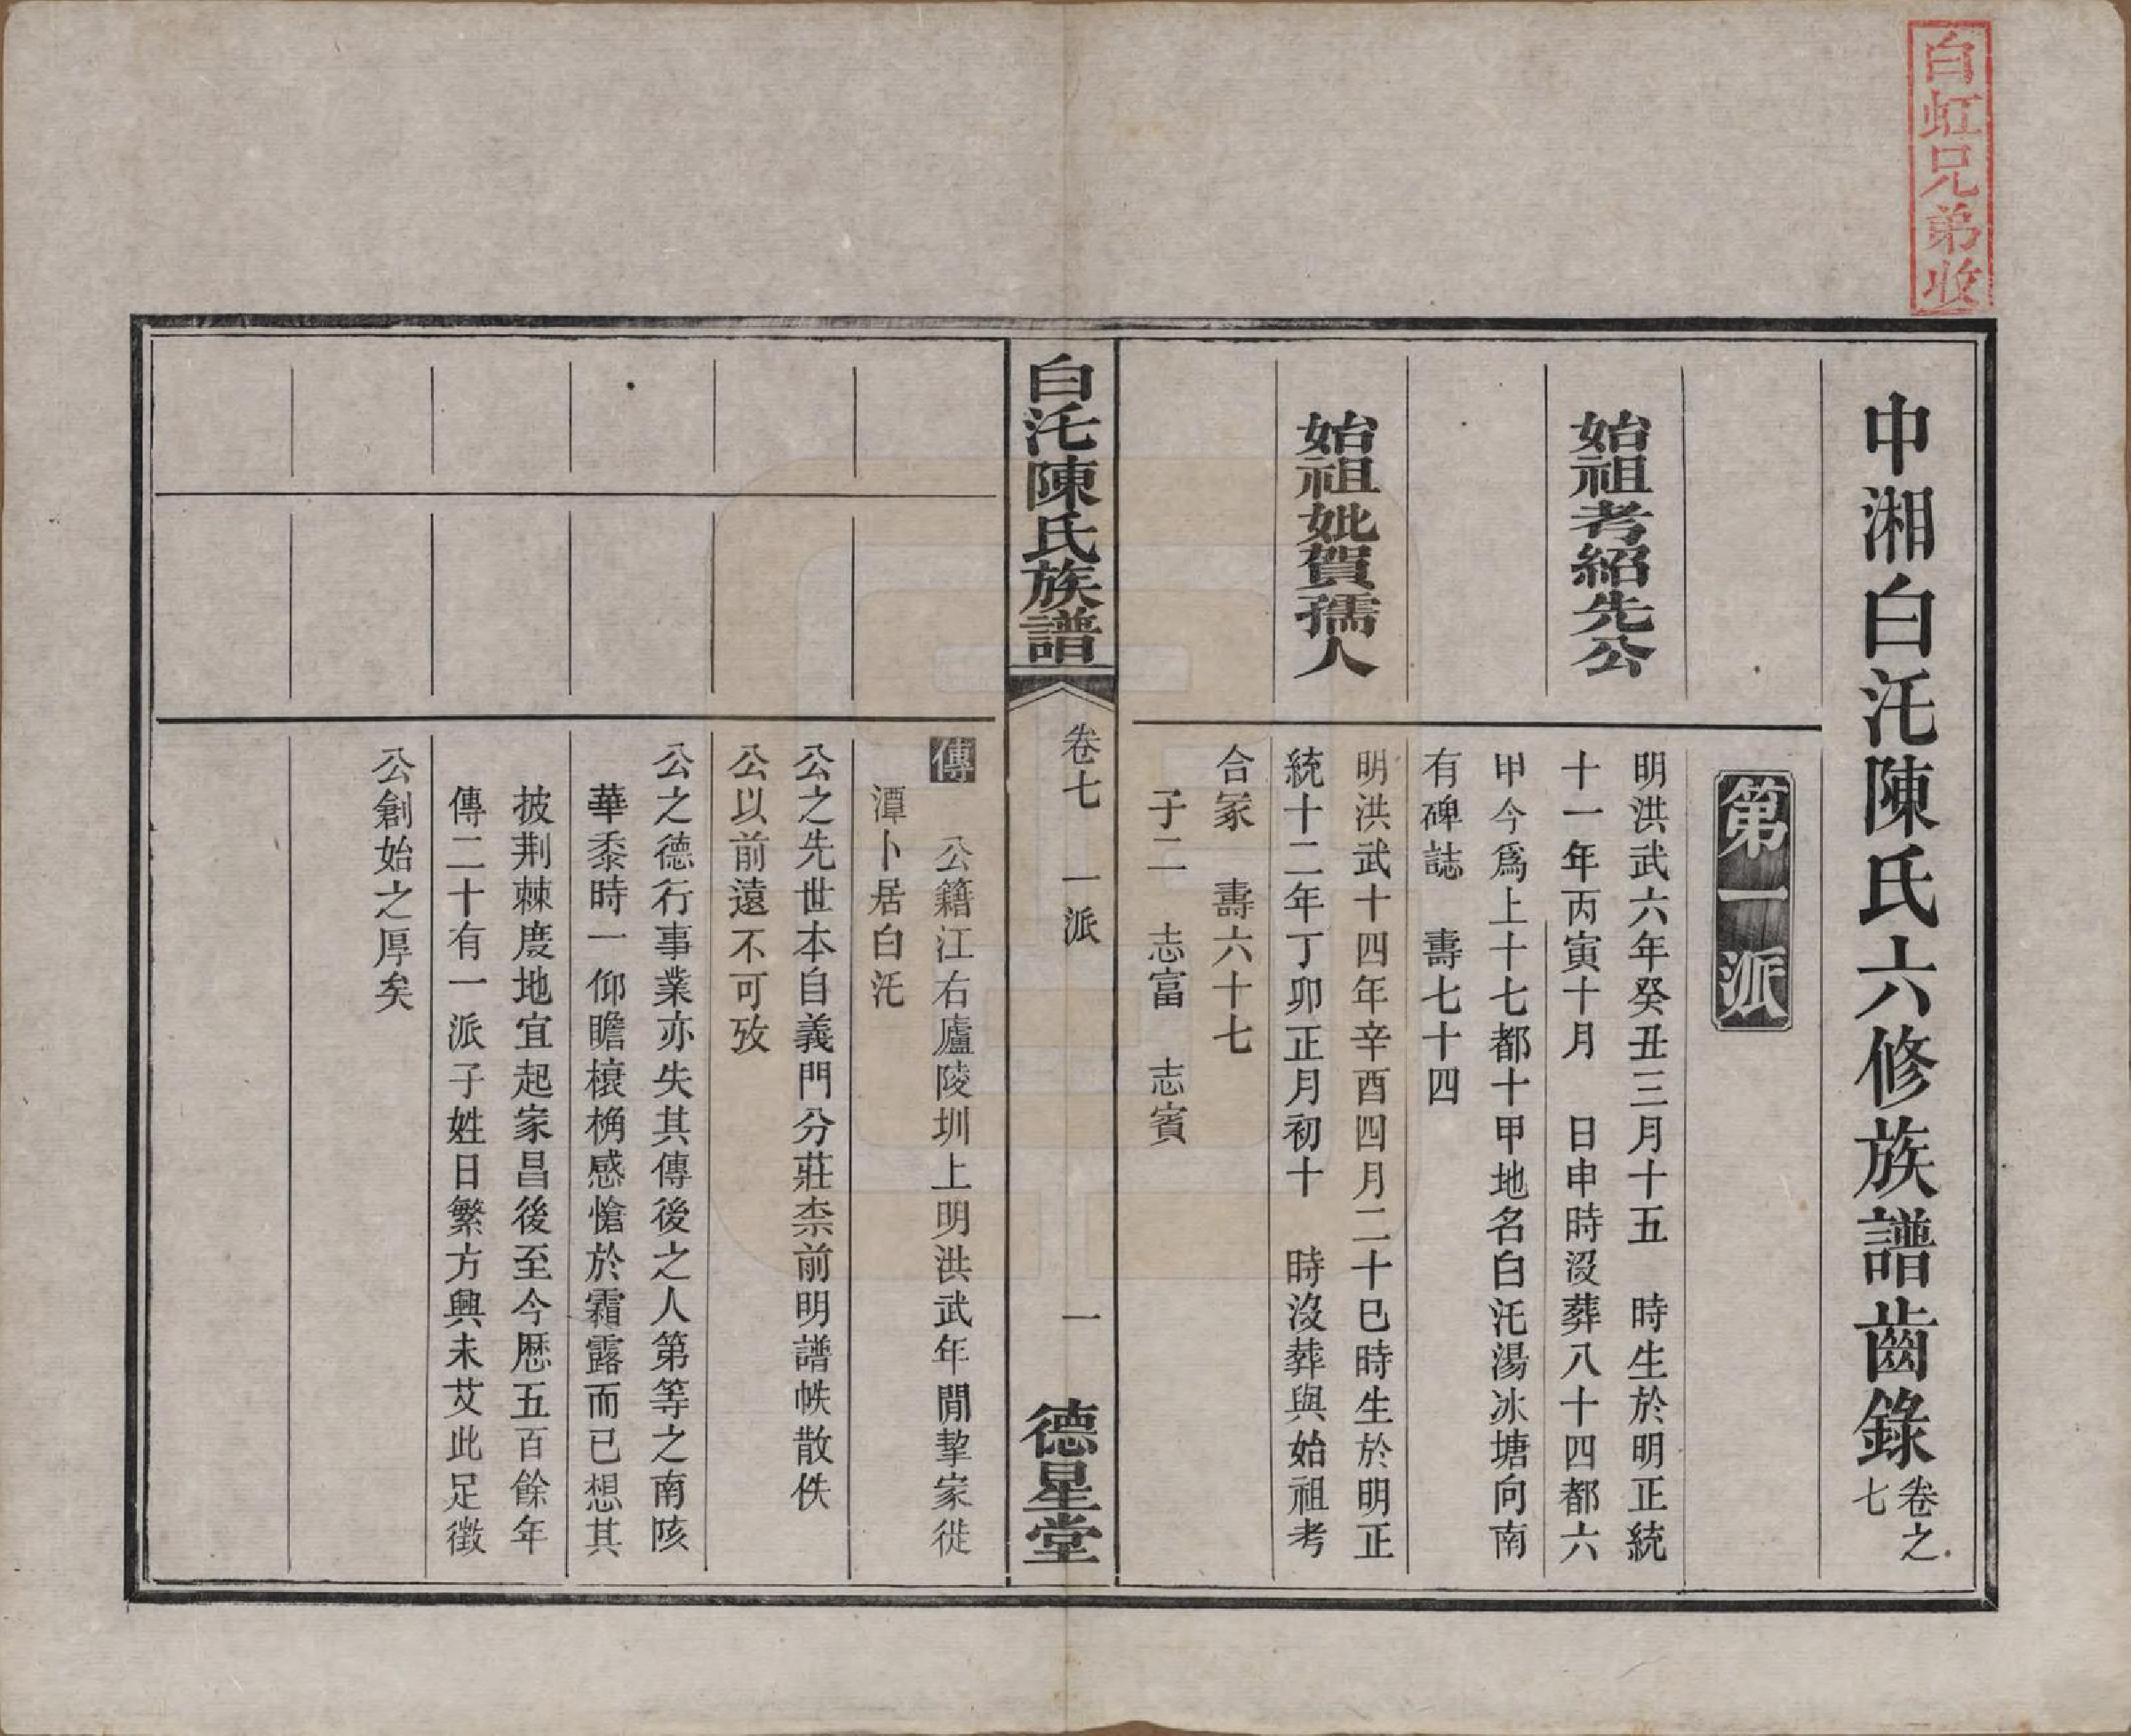 白虹兄弟收
中湘白汑陳氏六修族譜齒錄卷之七
第一派
始祖考紹先公
明洪武六年癸丑三月十五　時生於明正統
十一年丙寅十月　日申時沒葬八十四都六
甲今爲上十七都十甲地名白汑湯冰塘向南
有碑誌　壽七十四
始祖妣賀孺人
明洪武十四年辛酉四月二十巳時生於明正
統十二年丁卯正月初十　時沒葬與始祖考
合冢　壽六十七
子二　志富　志賓
白汑陳氏族譜
卷七　一派
一
德星堂
傳　公籍江右廬陵圳上明洪武年閒挈家徙
潭卜居白汑
公之先世本自義門分莊柰前明譜帙散佚
公以前遠不可攷
公之德行事業亦失其傳後之人第等之南陔
華黍時一仰瞻榱桷感愴於霜露而已想其
披荆棘度地宜起家昌後至今歷五百餘年
傳二十有一派子姓日繁方興未艾此足徵
公創始之厚矣